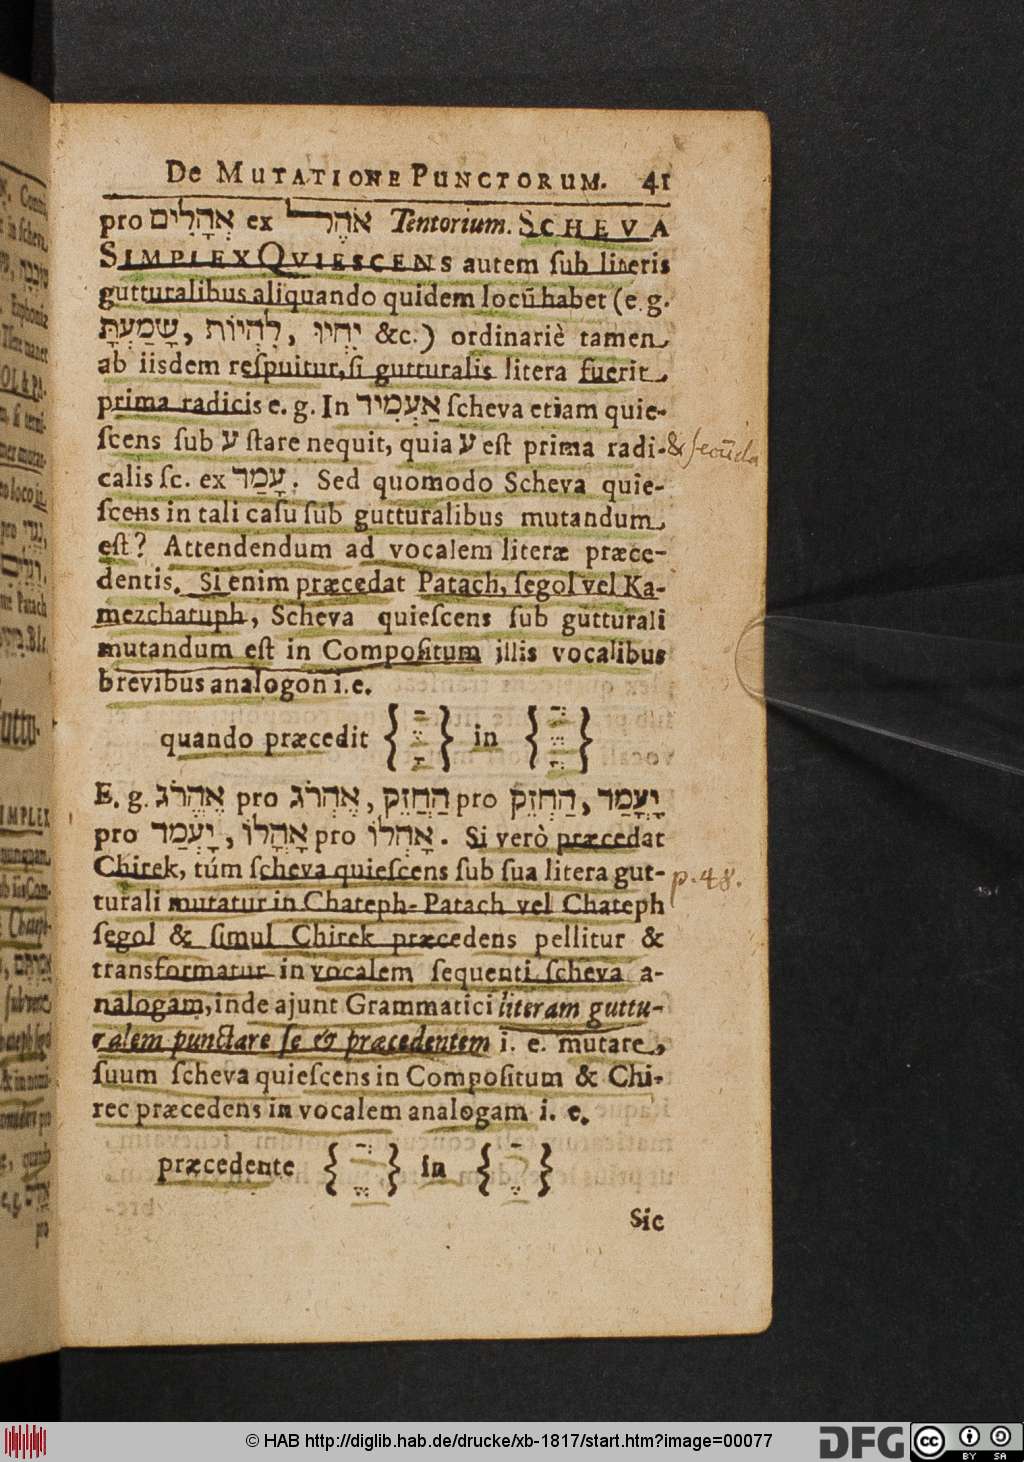 De MUTATIONE PUNCTORUM. 41
pro אְהָלִים ex אֹהֶל Tentorium. SCHEVA
SIMPLEX QVIESCENS autem ſub literis
gutturalibus aliquando quidem locũ habet (e. g.
יִחְיוּ, לִהְיוֹת, שָׁמַעְתָּ &c.) ordinariè tamen
ab iisdem reſpuitur, ſi gutturalis litera fuerit
prima radicis e. g. In אַעְמִיד ſcheva etiam quie-
ſcens ſub ע ſtare nequit, quia ע eſt prima radi-
& ſecũda
calis ſc. ex עָמַד. Sed quomodo Scheva quie-
ſcens in tali caſu ſub gutturalibus mutandum
eſt? Attendendum ad vocalem literæ præce-
dentis. Si enim præcedat Patach, ſegol vel Ka-
mezchatuph, Scheva quieſcens ſub gutturali
mutandum eſt in Compoſitum illis vocalibus
brevibus analogon i. e.
quando præcedit in
E. g. אֶהֱרֹג pro אֶהְרֹג, הַחֲזֵק pro הַחְזֵק, יָעֳמַד
pro יָעְמַד, אָהֳלוֹ pro אָהְלוֹ. Si verò præcedat
Chirek, túm ſcheva quieſcens ſub ſua litera gut-
p. 48.
turali mutatur in Chateph-Patach vel Chateph
ſegol & ſimul Chirek præcedens pellitur &
transformatur in vocalem ſequenti ſcheva a-
nalogam, inde ajunt Grammatici literam guttu-
ralem punctare ſe & præcedentem i. e. mutare
ſuum ſcheva quieſcens in Compoſitum & Chi-
rec præcedens in vocalem analogam i. e.
præcedente in
Sic
© HAB http://diglib.hab.de/drucke/xb-1817/start.htm?image=00077
DFG
cc BY SA